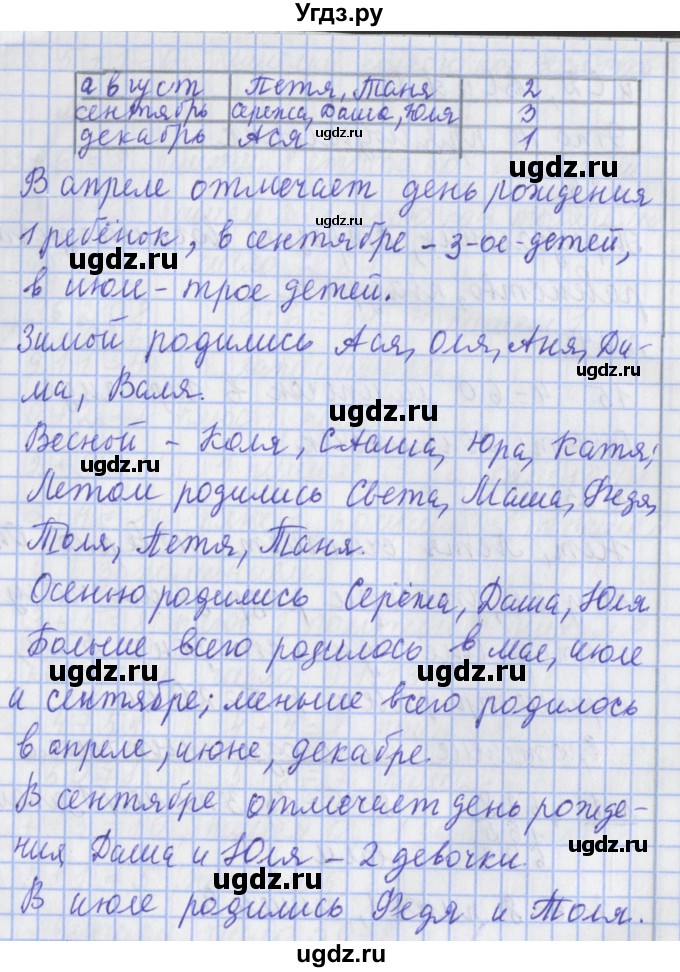 Угдз.ру
август Петя, Таня 2
сентябрь Сережа, Даша, Юля 3
декабрь Ася 1
ugdz.ru
ugdz.ru
В апреле отмечает день рождения
ugdz.ru
1 ребёнок, в сентябре - 3-ое-детей,
ugdz.ru
в июле - трое детей.
Зимой родились Ася, Оля, Аня, Ди-
ма, Валя.
ugdz.ru
Весной - Коля, Саша, Юра, Катя;
ugdz.ru
Летом родились Света, Маша, Федя,
Толя, Петя, Таня.
ugdz.ru
Осенью родились Серёжа, Даша, Юля
Больше всего родилось в мае, июле
ugdz.ru ugdz.ru
и сентябре; меньше всего родилось
в апреле, июне, декабре.
В сентябре отмечает день рожде-
ugdz.ru
ния Даша и Юля - 2 девочки.
ugdz.ru
В июле родились Федя и Толя.
ugdz.ru